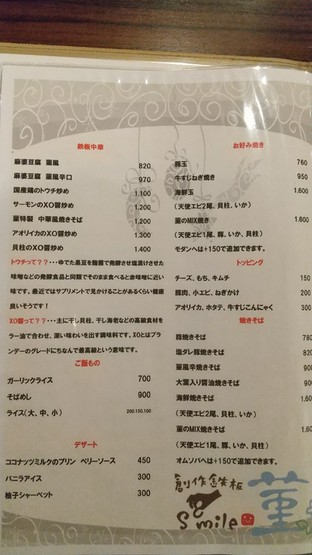 鉄板中華
麻婆豆腐 菫風 820
麻婆豆腐 菫風辛口 970
国産鶏のトウチ炒め 1.100
サーモンのXO醤炒め 1.100
菫特製 中華風焼きそば 1.200
アオリイカのXO醤炒め 1.400
貝柱のXO醤炒め 1.400
トウチって??・・・ゆでた黒豆を麹菌で発酵させ塩漬けさせた
味噌などの発酵食品と同類でそのまま食べると赤味噌に近い
味です。最近ではサプリメントで見かけることがあるくらい健康
良いそうです!
XO醤って??・・・主に干し貝柱、干し海老などの高級食材を
ラー油で合わせ、深い味わいを出す調味料です。XOとはブラ
ンデーのグレードにちなんで最高級という意味です。
ご飯もの
ガーリックライス 700
そばめし 900
ライス(大、中、小) 200.150.100
デザート
ココナッツミルクのプリン ベリーソース 450
バニラアイス 300
柚子シャーベット 300
お好み焼き
豚玉 760
牛すじねぎ焼き 950
海鮮玉 1.600
(天使エビ2尾、貝柱、いか)
菫のMIX焼き 1.600
(天使エビ1尾、豚、いか、貝柱)
モダンへは+150で追加できます。
トッピング
チーズ、もち、キムチ 150
豚肉、小エビ、ねぎかけ 200
アオリイカ、ホタテ、牛すじこんにゃく 300
焼きそば
豚焼きそば 780
塩ダレ豚焼きそば 800
菫風辛焼きそば 900
大葉入り醤油焼きそば 900
海鮮焼きそば
(天使エビ2尾、貝柱、いか)
菫のMIX焼きそば
(天使エビ1尾、豚、いか、貝柱)
オムソバへは+150で追加できます。
創作鉄板 菫
Smile